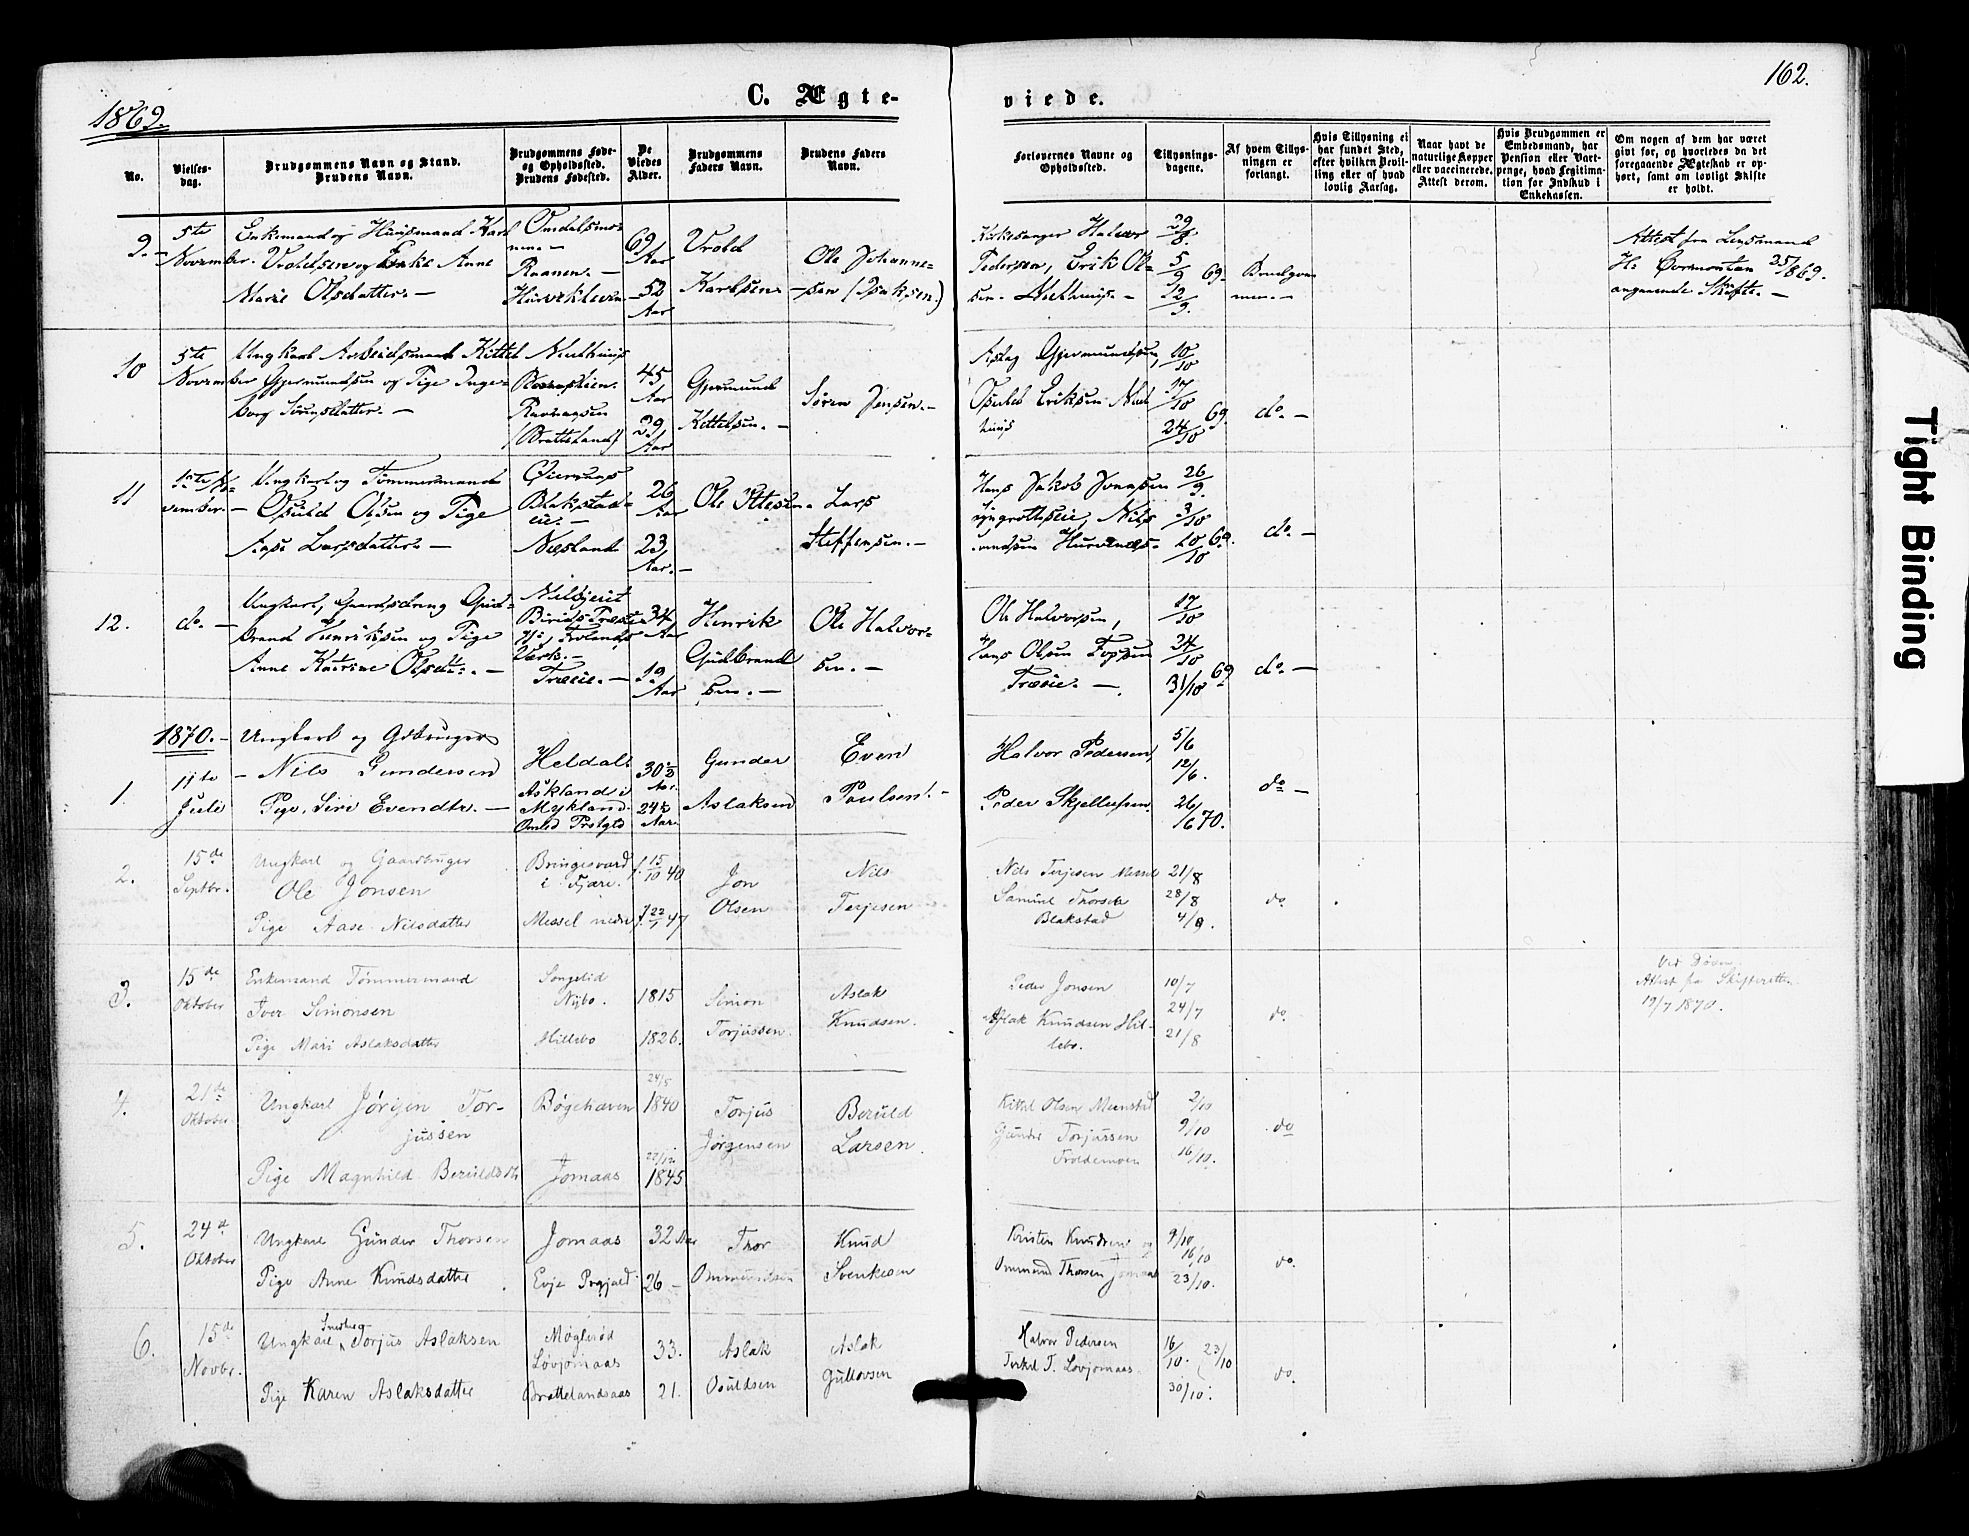 1869.
C. Ægte-
viede.
162.
No.
Vielses-
dag.
Brudgommens Navn og Stand.
Brudens Navn.
Brudgommens Føde-
og Opholdssted.
Brudens Fødested.
De
Viedes
Alder.
Brudgommens
Faders Navn.
Brudens Faders
Navn.
Forlovernes Navne og
Opholdssted.
Tillysnings-
dagene.
Af hvem Tillys-
ningen er
forlangt.
Hvis Tillysning ei
har fundet Sted,
efter hvilken Bevil-
ling eller af hvad
lovlig Aarsag.
Naar havt de
naturlige Kopper
eller vaccinerede.
Attest derom.
Hvis Brudgommen er
Embedsmand, har
Pension eller Vart-
penge, hvad Legitima-
tion for Indskud i
Enkekassen.
Om nogen af dem har været
gift før, og hvorledes da det
foregaaende Ægteskab er op-
hørt, samt om lovligt Skifte
er holdt.
9.
5te
November.
Enkemand og Huusmand Karl
Vroldsen og Enke Anne
Marie Olsdatter. —
Raanen. —
69
Aar
52
Aar
Vrold
Karlsen. —
Ole Johanne-
sen (Isaksen.)
Kirkesanger Halvor
Pedersen, Erik Ol-
sen
29/8
5/9 69.
12/9.
Brudgom
men. —
Attest fra Lensmand
25/8 69.
angaaende Skifte. —
10
5te
November
Ungkarl Arbeidsmand Kittel
Gjermundsen og Pige Inge-
borg Sørensdatter. —
(Bratteland)
45
Aar
29
Aar
Gjermund
Kittelsen. —
Søren Jensen. —
Aslag Gjermundsen,
Osuld Eriksen
10/10
17/10
24/10 69.
do. —
11
1ste No-
vember. —
Ungkarl og Tømmermand
Osuld Olsen og Pige
Aase Larsdatter. —
Blakstad-
eie. —
Næsland
26
Aar
23
Aar. —
Ole
Lars
Steffensen. —
Hans Jakob Jonassen
Nils
26/9.
3/10
10/10 69.
do. —
12.
do. —
Ungkarl, Gaardsdreng Gud-
brand Henriksen og Pige
Anne Katrine Olsdtr. —
Værk. —
Træeie. —
34
Aar
19
Aar
Henrik
Gudbrand
sen. —
Ole Halvor-
sen. —
Ole Halvorsen,
Hans Olsen
Træeie. —
17/10
24/10
31/10 69
do. —
1870. —
1.
11te
Juli
Ungkarl og Gdbruger
Nils Gundersen
Pige, Siri Evendtr. —
Heldal.
Askland i
Mykland.
Omlid Prstgld
30
Aar.
24
Aar.
Gunder
Aslaksen
Even
Poulsen. —
Halvor Pedersen,
Peder Skjellessen
5/6
12/6.
26/6 70.
do —
2.
15de
Septbr.
Ungkarl og Gaardbruger
Ole Jonsen
Pige Aase Nilsdatter
Bringesvard
i Fjære.
Messel nedre
f. 15/10 40
f. 22/1 47
Jon
Olsen
Nils
Terjesen
Nils Terjesen Messel
Samuel Thorsen
Blakstad
21/8
28/8
4/9.
do
3.
15de
Oktober
Enkemand Tømmermand
Iver Simonsen
Pige Mari Aslaksdatter
Songelid
Nybo.
Hillebo
1815
1826.
Simon
Torjussen.
Aslak
Knudsen.
Peder Jonsen
Aslak Knudsen Hil-
lebo.
10/7
24/7
21/8
do.
Ved Døden.
Attest fra Skifteretten
19/7 1870.
4.
21de
Oktober
Ungkarl Jørgen Tor-
jussen
Pige Magnhild Beruldsdtr
Bøgehaven
Jomaas
24/5
1840
22/12.
1845
Torjus
Jørgensen
Beruld
Larsen.
Kittel Olsen
Gunder Torjussen
Troldemoen
2/10
9/10
16/10.
do
5.
24d
Oktober
Ungkarl Gunder Thorsen
Pige Anne Knudsdatter
Jomaas
Evje Prgjæld
32 Aar
26 —
Thor
Ommundsen
Knud
Svenkesen
Kristen Knudsen og
Ommund Thorsen Jomaas
9/10
16/10
23/10.
do.
6.
15de
Novbr.
Snedker
Ungkarl Torjus Aslaksen
Pige Karen Aslaksdatter
Møglerød
Løvjomaas
Brattelandsaas
33.
21.
Aslak
Osuldsen
Aslak
Gullovsen
Halvor Pedersen
Terkel T. Lovjomaas
16/10. 23/10
30/10.
do.
Tight Binding